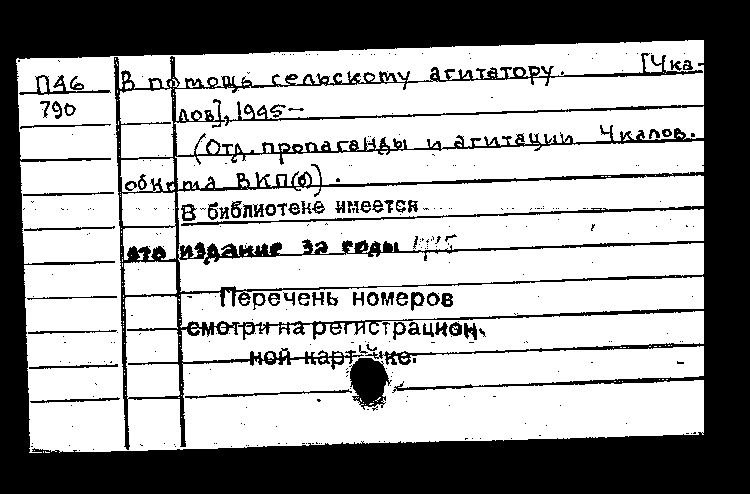 П46 В помощь сельскому агитатору. [Чка-
790 лов], 1945–
(Отд. пропаганды и агитации Чкалов.
обкома ВКП(б)).
В библиотеке имеется
это издание за годы 1945
Перечень номеров
смотри на регистрацион-
ной карточке.